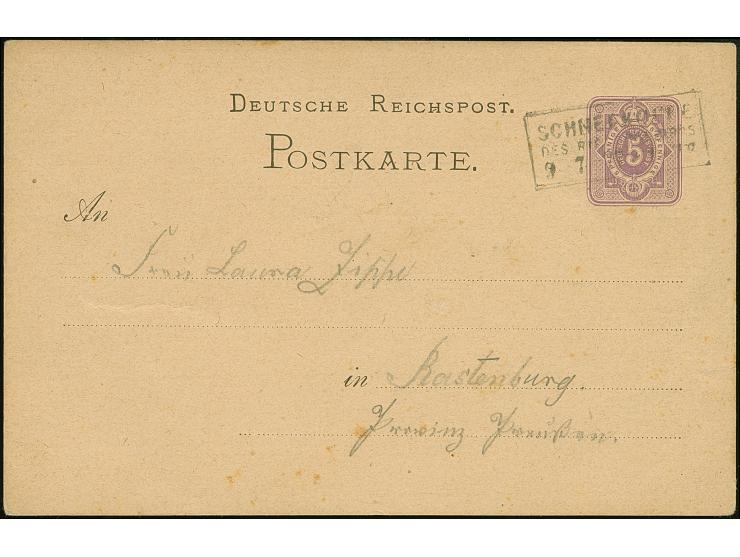 DEUTSCHE REICHSPOST.
POSTKARTE.
SCHNEEKOPPE
DES
9 7
5
An
Frau Laura Zippe
in Rastenburg.
Provinz Preußen.